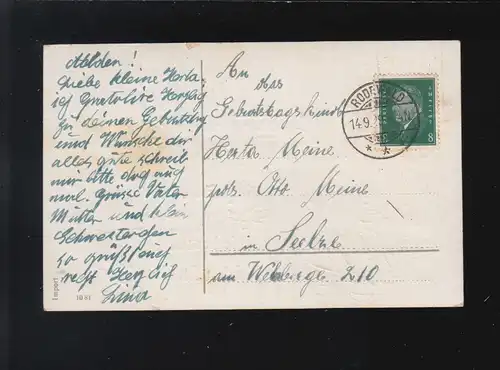 Melden!
Liebe kleine Herta
ich Gratuliere Herzlig
zu deinen Geburtstag
und Wünsche dir
alles gute schreib
mir bitte doch auch
mal. Grüße Vater
Mutter und klein
Schwestergen
so grüßt auch
recht Herzlich
Lina
An das
Geburtstagskind
Herta Meine
pr. Otto Meine
in Seelze
am Wehberge 210
RODEWALD
14.9.
DEUTSCHES REICH
8
Import
1081